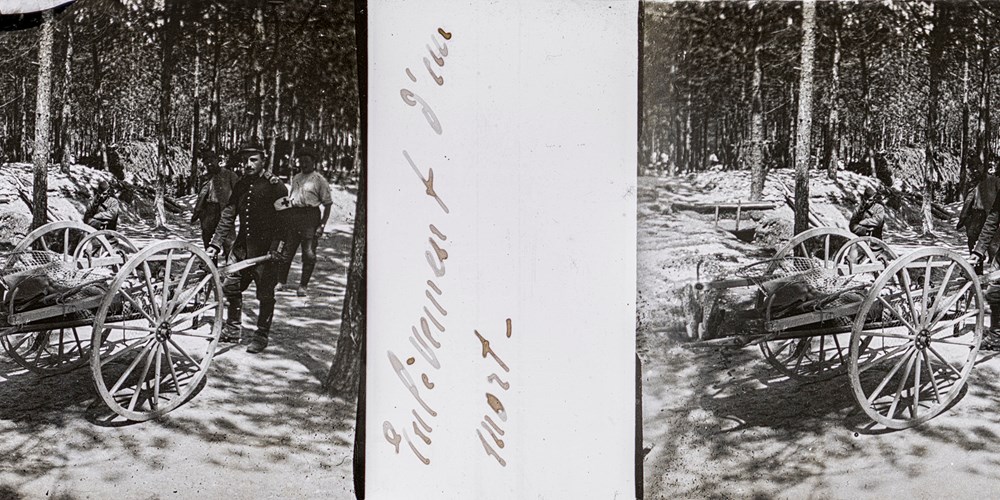 Enlèvement d'un
mort_